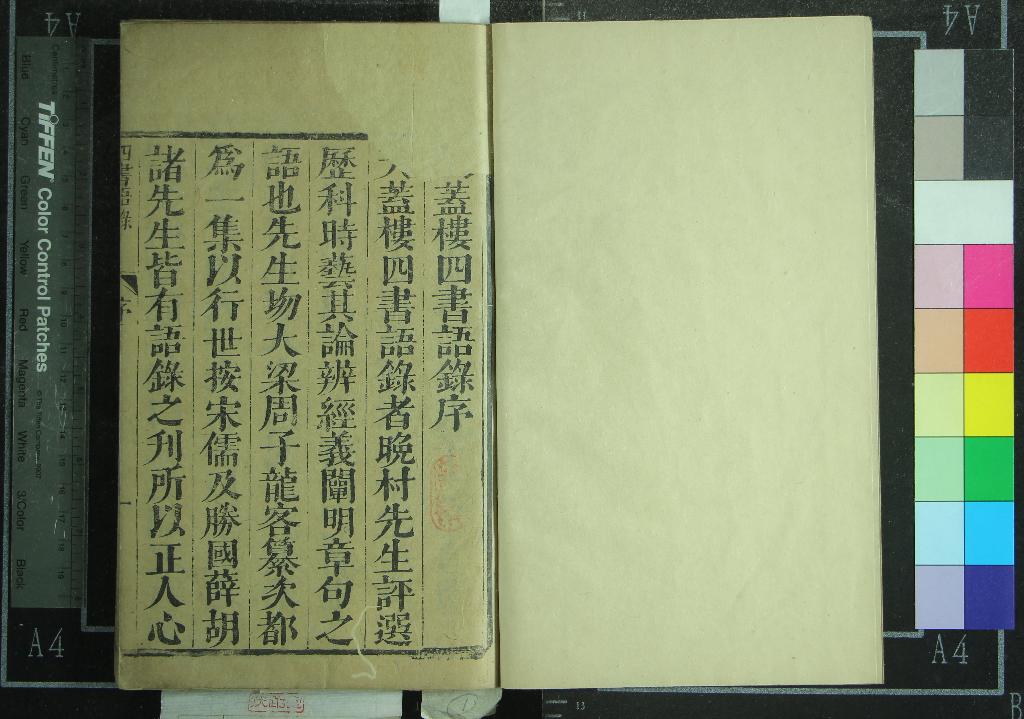 蓋樓四書語錄序
蓋樓四書語錄者晚村先生評選
歷科時藝其論辨經義闡明章句之
語也先生歾大梁周子龍客纂次都
爲一集以行世按宋儒及勝國薛胡
諸先生皆有語錄之刋所以正人心
四書語錄
序
一
TIFFEN Color Control Patches
Blue Cyan Green Yellow Red Magenta White 3/Color Black
A4
A4
A4
A4
B
13